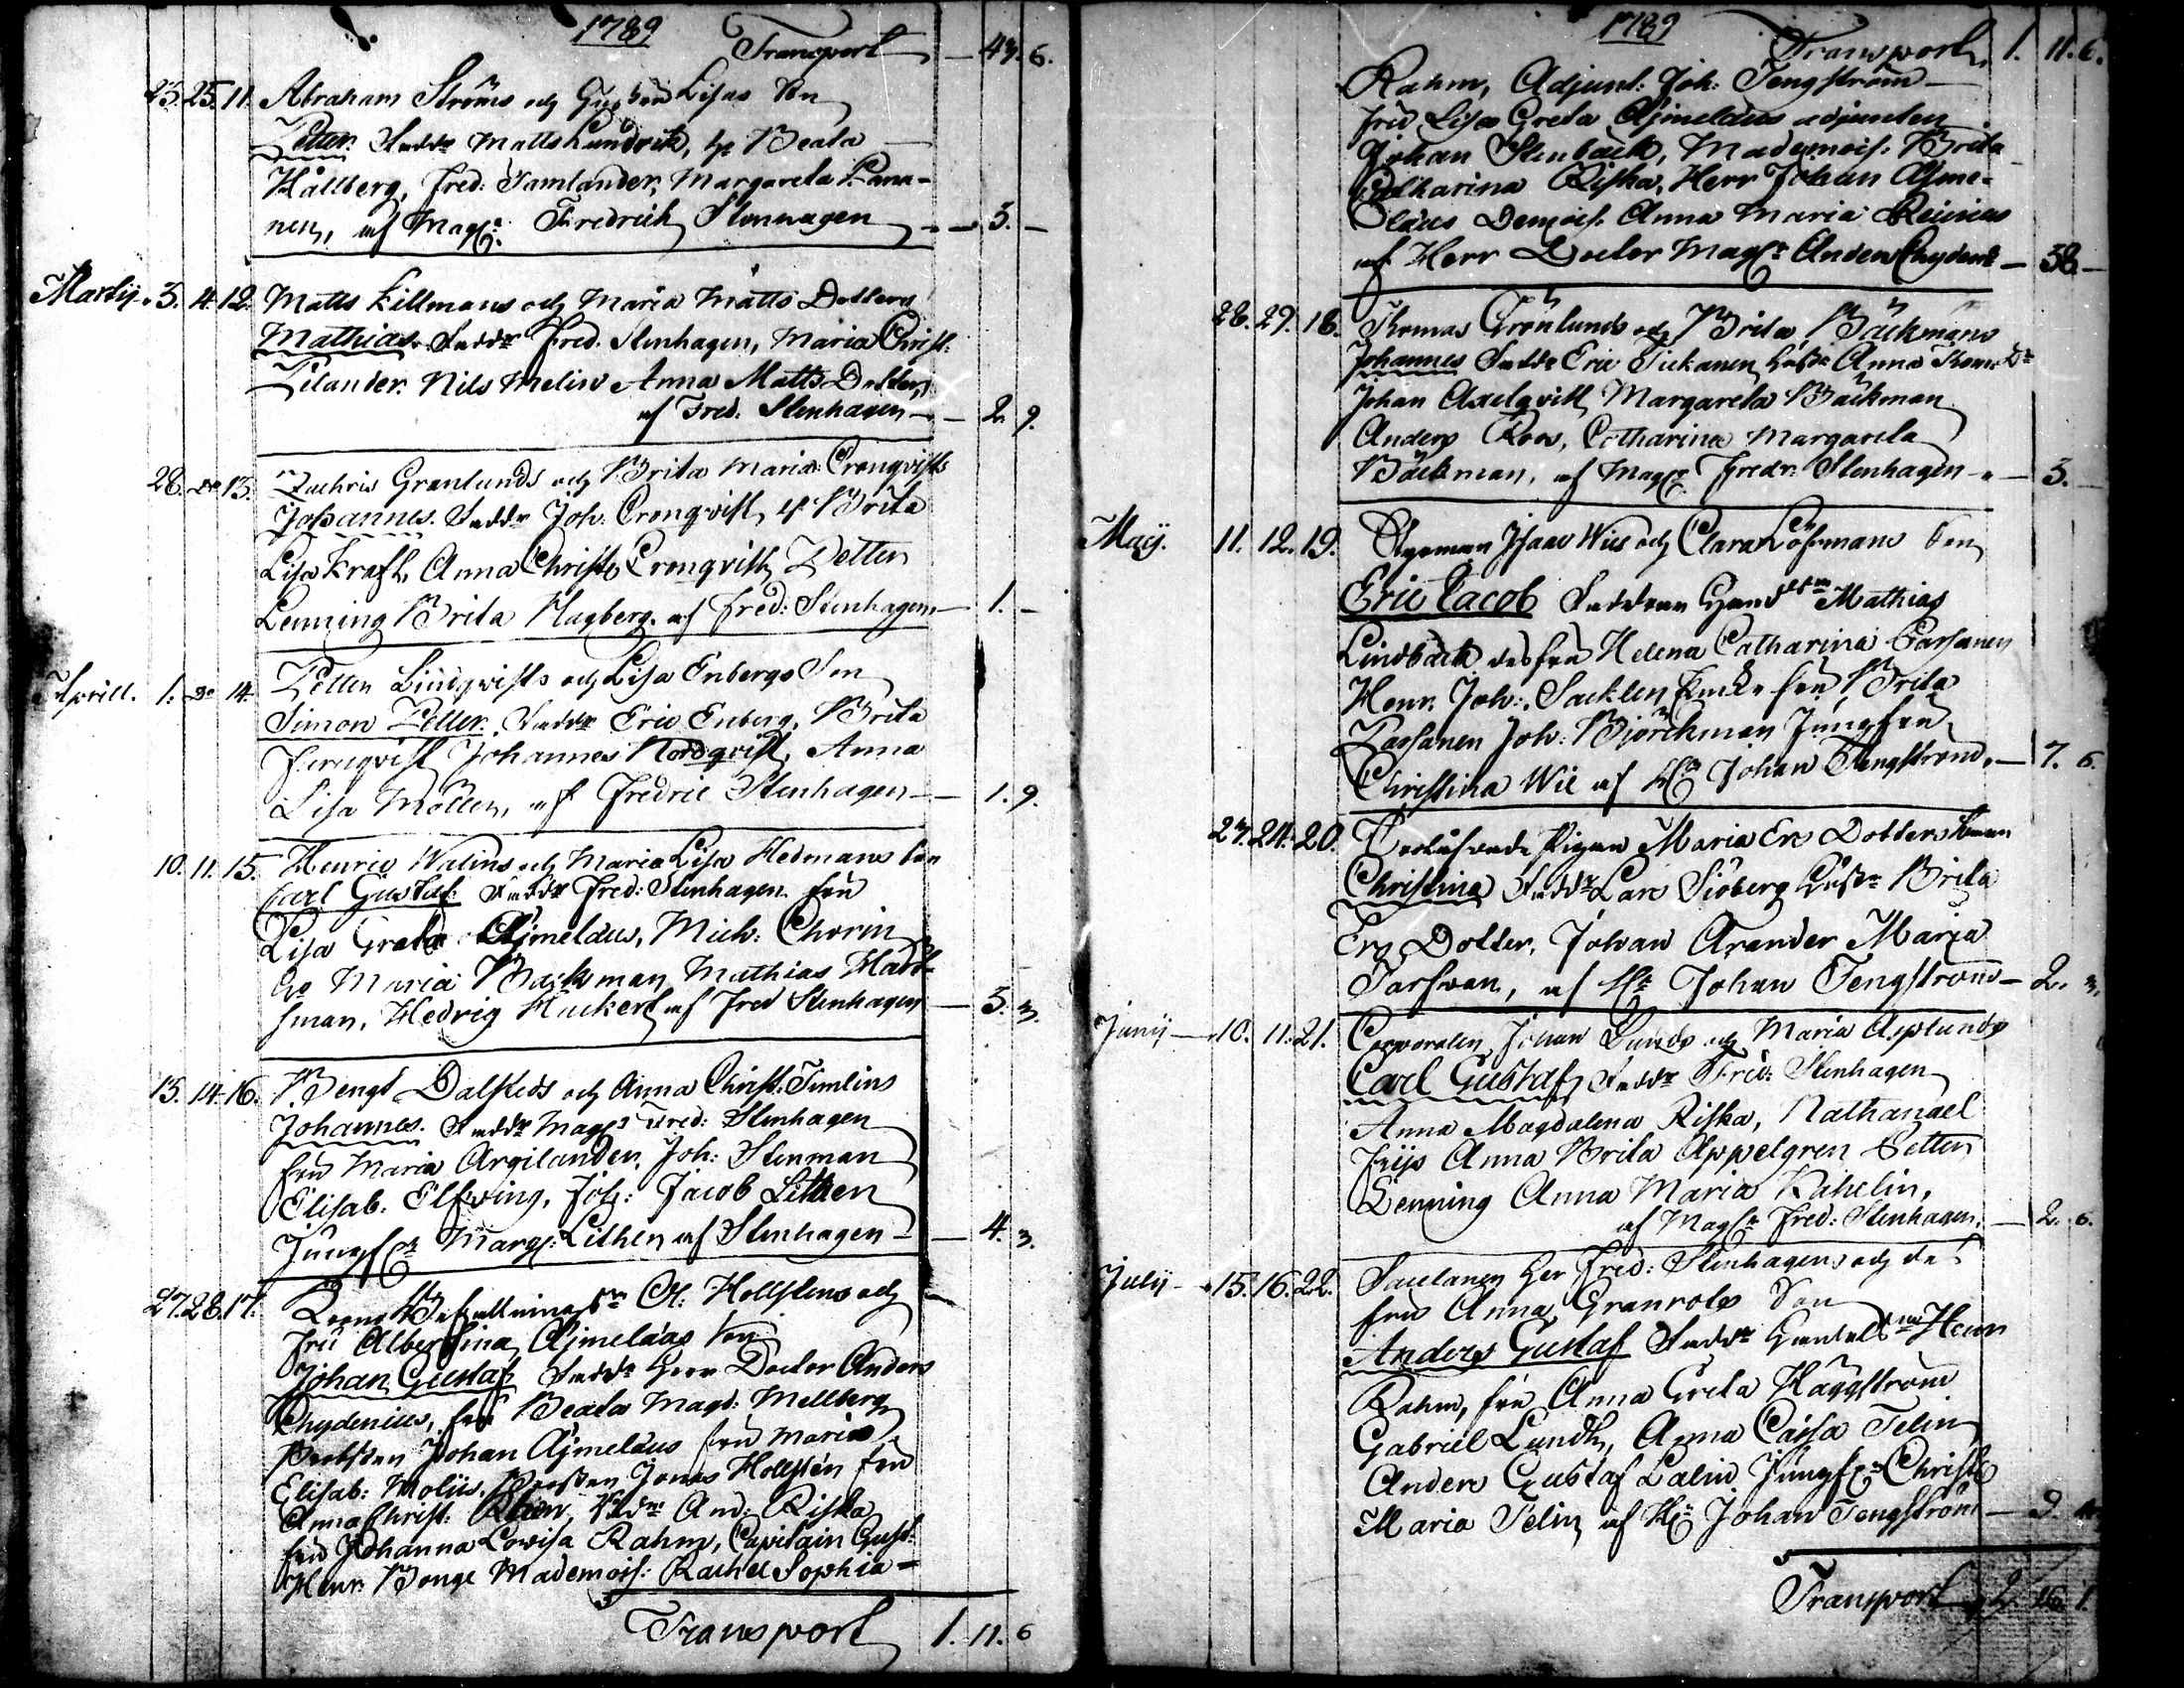 1789
Transport — 43. 6.
25. 25. 11. Abraham Ströms och Lisas Son
Petter. Faddr Matts Lundvik, h. Beata
Hållberg, Fred: Tamlander, Margareta Pana-
nen, af Magr. Fredrich Stenhagen — 3. —
Martij. 3. 4. 12. Matts Killmans och Maria Matts Dotters
Mathias. Faddr Fred. Stenhagen, Maria Christ:
Zilander. Nils Melin Anna Matts Dotter,
af Fred. Stenhagen — 2. 9.
28. do 13. Zachris Granlunds och Brita Maria Cronqvists
Johannes. Faddr Joh. Cronqvist, h. Brita
Lisa Kraft, Anna Christ. Cronqvist, Petter
Lenning Brita Hagberg. af Fred: Stenhagen — 1. —
Aprill. 1. do 14. Petter Lindqvists och Lisa Enbergs Son
Simon Petter. Faddr Eric Enberg, Brita
Johannes Nordqvist, Anna
Lisa Möller, af Fredric Stenhagen — 1. 9.
10. 11. 15. Henric Walins och Maria Lisa Hedmans Son
Carl Gustaf. Faddr Fred: Stenhagen. fru
Lisa Greta Ajmelæus, Mich: Chorin
h. Maria Backman Mathias Hard-
sman, Hedvig Huckert af Fred Stenhagen — 5. 3.
13. 14. 16. Bengt Dalsteds och Anna Christ. Timlins
Johannes. Faddr Magr Fred: Stenhagen
fru Maria Argilander, Joh: Stenman
Elisab: Elfving, Joh: Jacob Lithen
Jungfr Marg: Lithen af Stenhagen — 4. 3.
27. 28. 17. Krono Befallningsm Ol: Hollstens och
fru Albertina Ajmelæus Son
Johan Gustaf. Faddr Herr Doctor Anders
Chydenius, fru Beata Magd: Mellberg
Prosten Johan Ajmelæus fru Maria
Elisab: Moliis, Prosten Jonas Hollsten fru
Anna Christ: And: Riska
fru Johanna Lovisa Rahm, Capitain Gust:
Henr: Bonge Mademois: Rachel Sophia =
Transport 1. 11. 6
1789
Transport 1. 11. 6.
Rahm, Adjunt: Joh: Tengström
fru Lisa Greta Ajmelæus adjuncten
Johan Stenbäck, Mademois: Brita
Catharina Riska, Herr Johan Ajme-
læus Demois. Anna Maria Reinius
af Herr Doctor Magr Anders Chydenis — 38. —
28. 29. 18. Thomas Grönlunds och Brita Bäckmans
Johannes Faddr Eric Tickanen hustr Anna Thoms Dr
Johan Axelqvist Margareta Bäckman
Anders Roos, Catharina Margareta
Bäckman, af Magr Fredr: Stenhagen — 3. —
Maij. 11. 12. 19. Isaac Wiis och Clara Löfmans Son
Eric Jacob Faddran Handelsm Mathias
Lindbäck des fru Helena Catharina Passanen
Henr. Joh: Sacklen fru Brita
Passanen Joh: Björckman Jungfru
Christina Wii af Hr Johan Tengström. — 7. 6.
23. 24. 20. Pigan Maria Ers Dotters
Christina Faddr Lars Siöberg hustr Brita
Ers Dotter, Johan Arander Maria
af Hr Johan Tengström — 2. 3.
Junij — 10. 11. 21. Corporalen Johan Lunds och Maria Asplunds
Carl Gustaf, Faddr Fred: Stenhagen
Anna Magdalena Riska, Nathanael
Anna Brita Appelgren Petter
Lenning Anna Maria Kihelin,
af Magr Fred: Stenhagen. — 2. 6.
Julij — 15. 16. 22. Herr Fred: Stenhagens och des
fru Anna Granrots Son
Anders Gustaf Faddr Handelsm Henr
Rahm, fru Anna Greta Häggström
Gabriel Lundh, Anna Caisa Telin
Anders Gustaf Lalin Jungfr Christ
Maria Telin af Hr Johan Tengström — 9.
Transport 2. 16. 1.